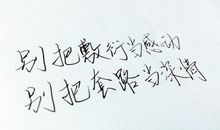 别把敷衍当感动
别把套路当深情